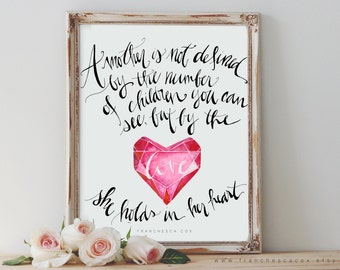 A mother is not defined
by the number
of children you can
see, but by the
love
she holds in her heart
FRANCHESCA COX
www.franchescacox.etsy